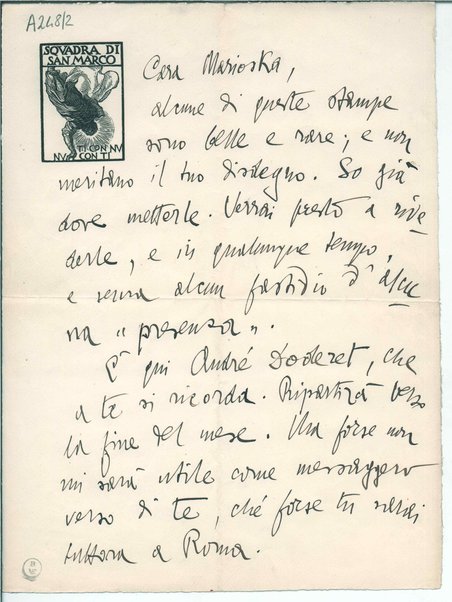 A248/2
SQVADRA DI
SAN MARCO
TI CON NV
NV CON TI
Cara Marioska,
alcune di queste stampe
sono belle e rare; e non
meritano il tuo disdegno. So già
dove metterle. Verrai presto a rive
derle, e in qualunque tempo,
e senza alcun fastidio d'alcu
na "presenza".
È qui André Doderet, che
a te si ricorda. Ripartirà verso
la fine del mese. Ma forse non
mi sarà utile come messaggero
verso di te, ché forse tu sarai
tuttora a Roma.